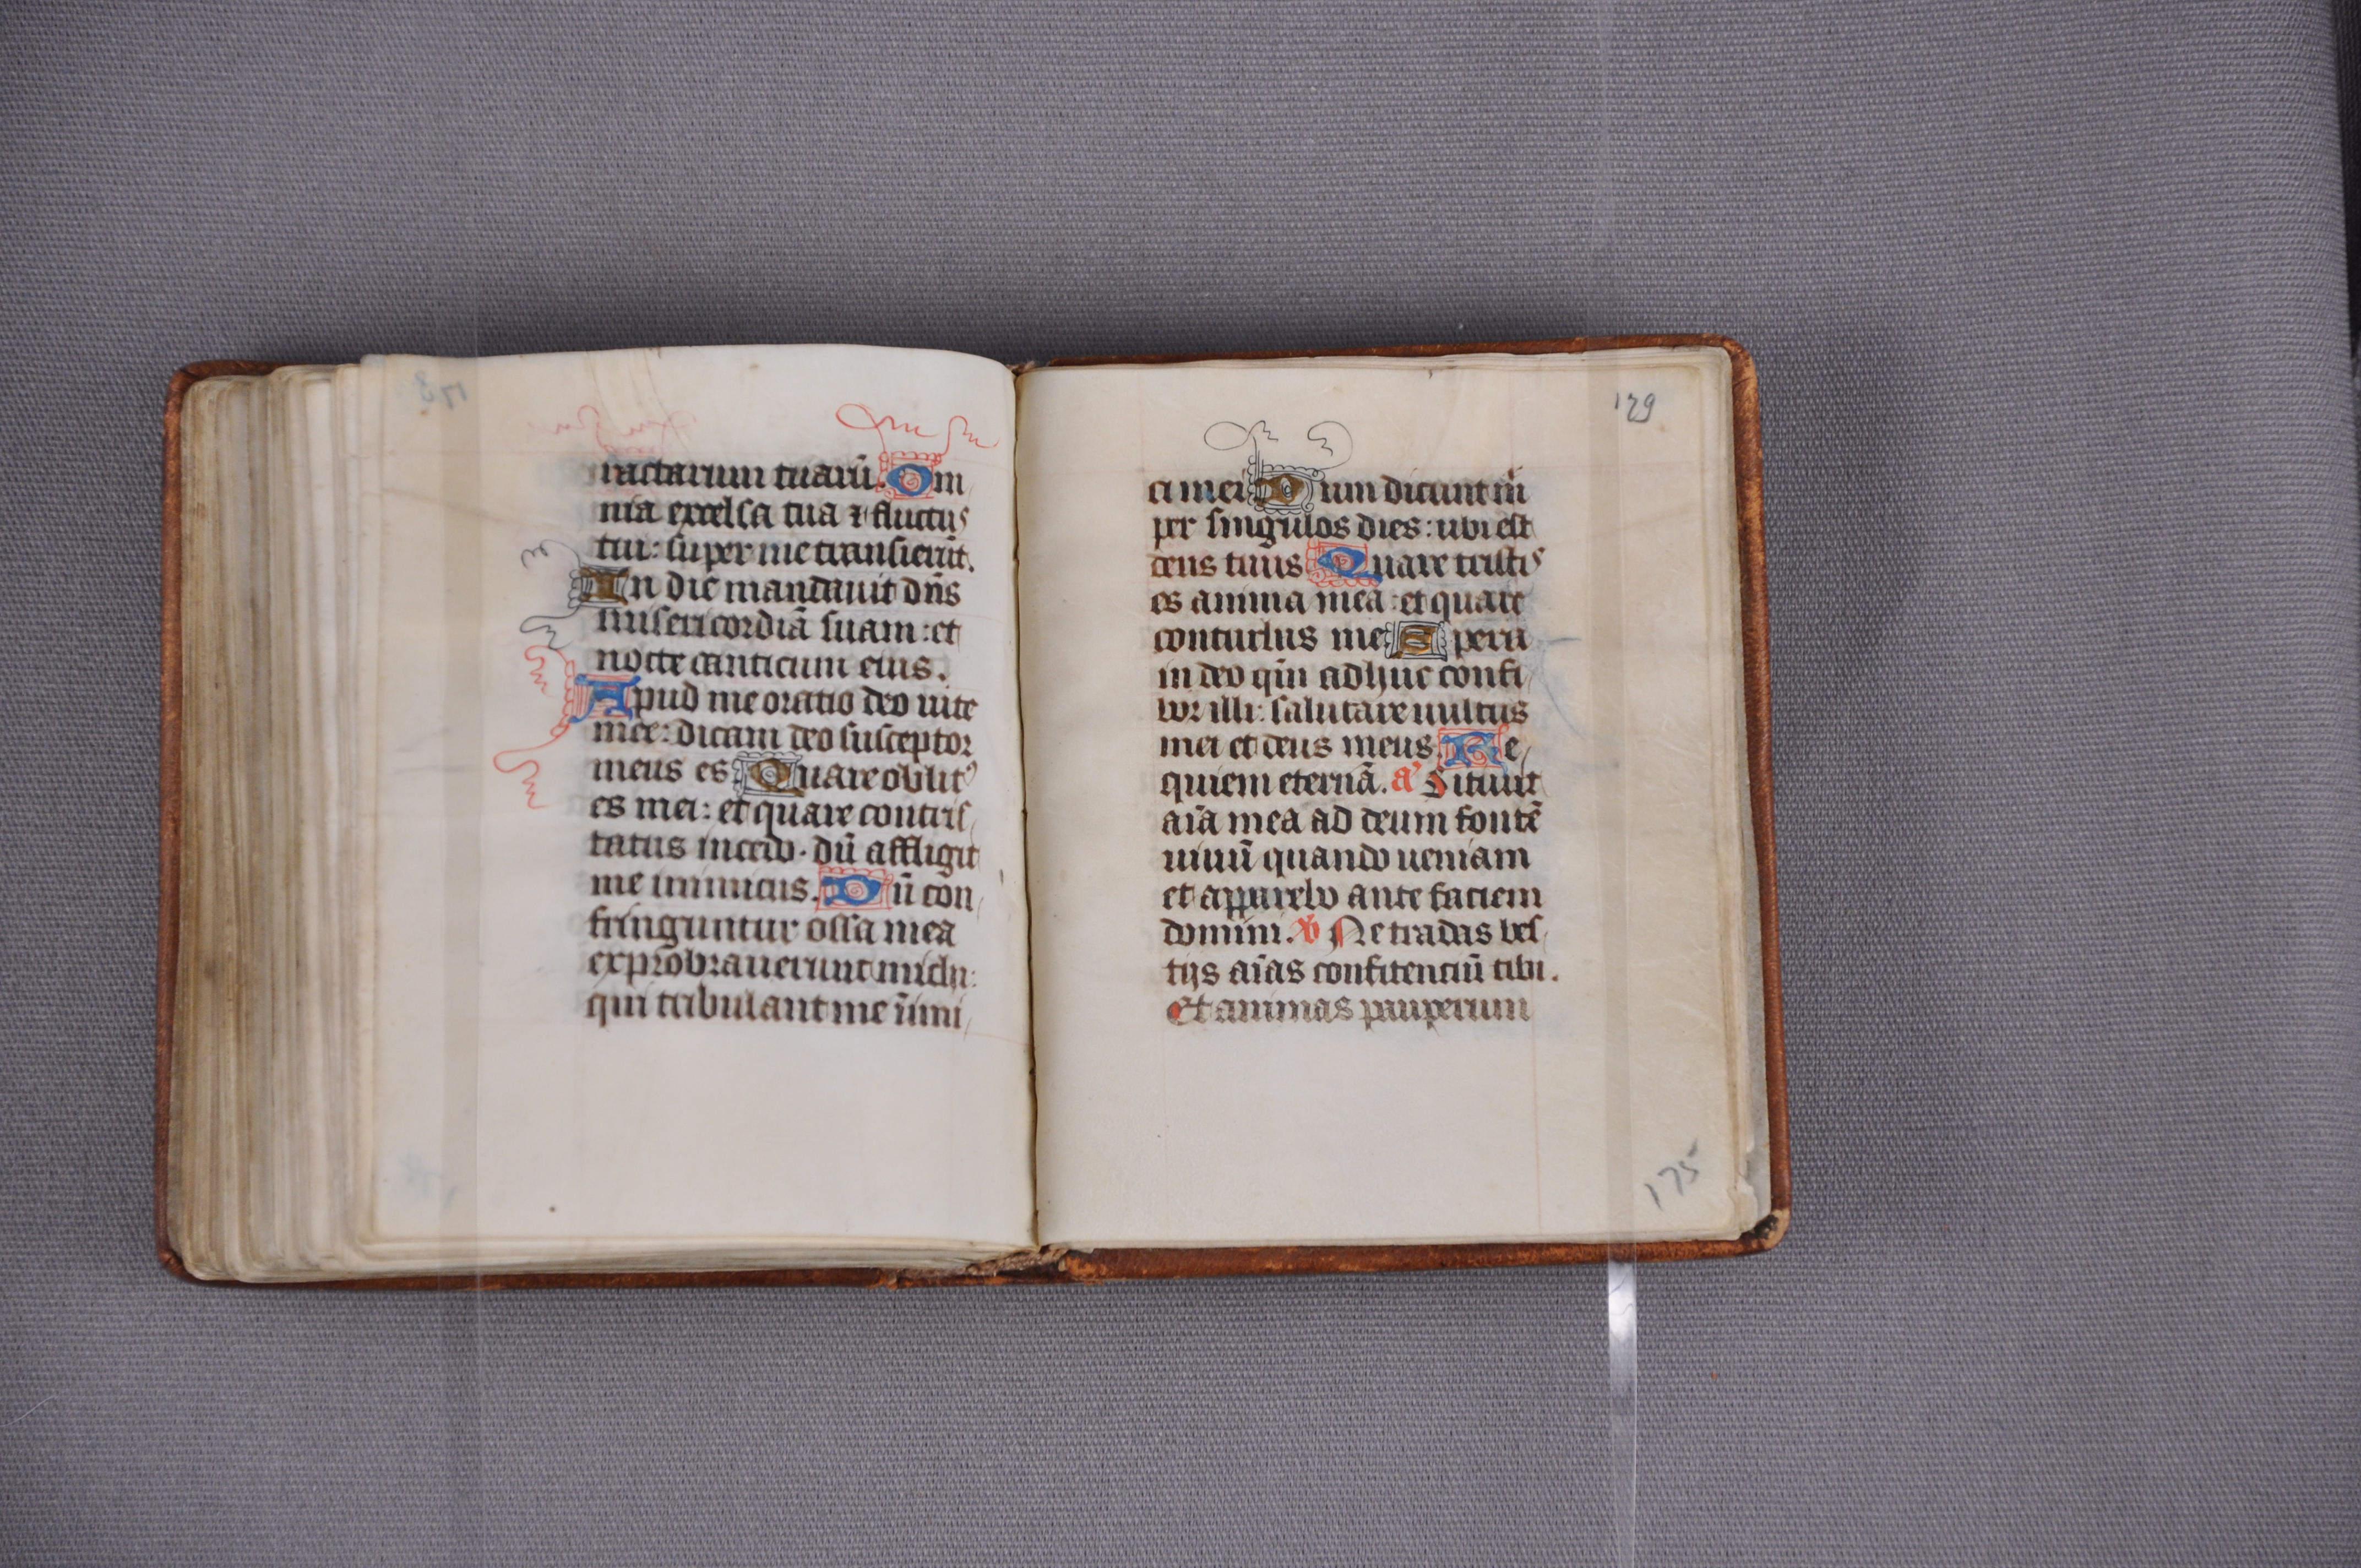 ractarum tuarū. Om
nia excelsa tua ⁊ fluctus
tui: super me transierūt.
In die mandauit dn̄s
misericordiā suam: et
nocte canticum eius.
Apud me oratio deo uite
mee: dicam deo susceptor
meus es. Quare oblitꝰ
es mei: et quare contris
tatus incedo. dū affligit
me inimicus. Dū con
fringuntur ossa mea
exprobrauerunt michi:
qui tribulant me inimi
129
ci mei. Dum dicunt m̄
per singulos dies: ubi est
deus tuus. Quare tristis
es anima mea: et quare
conturbas me. Spera
in deo qm̄ adhuc confi
bor illi: salutare uultus
mei et deus meus. Re
quiem eternā. a' Sitiuit
aīa mea ad deum fontē
uiuū quando ueniam
et apparebo ante faciem
domini. v̓ Ne tradas bes
tijs aīas confitenciū tibi.
Et animas pauperum
175